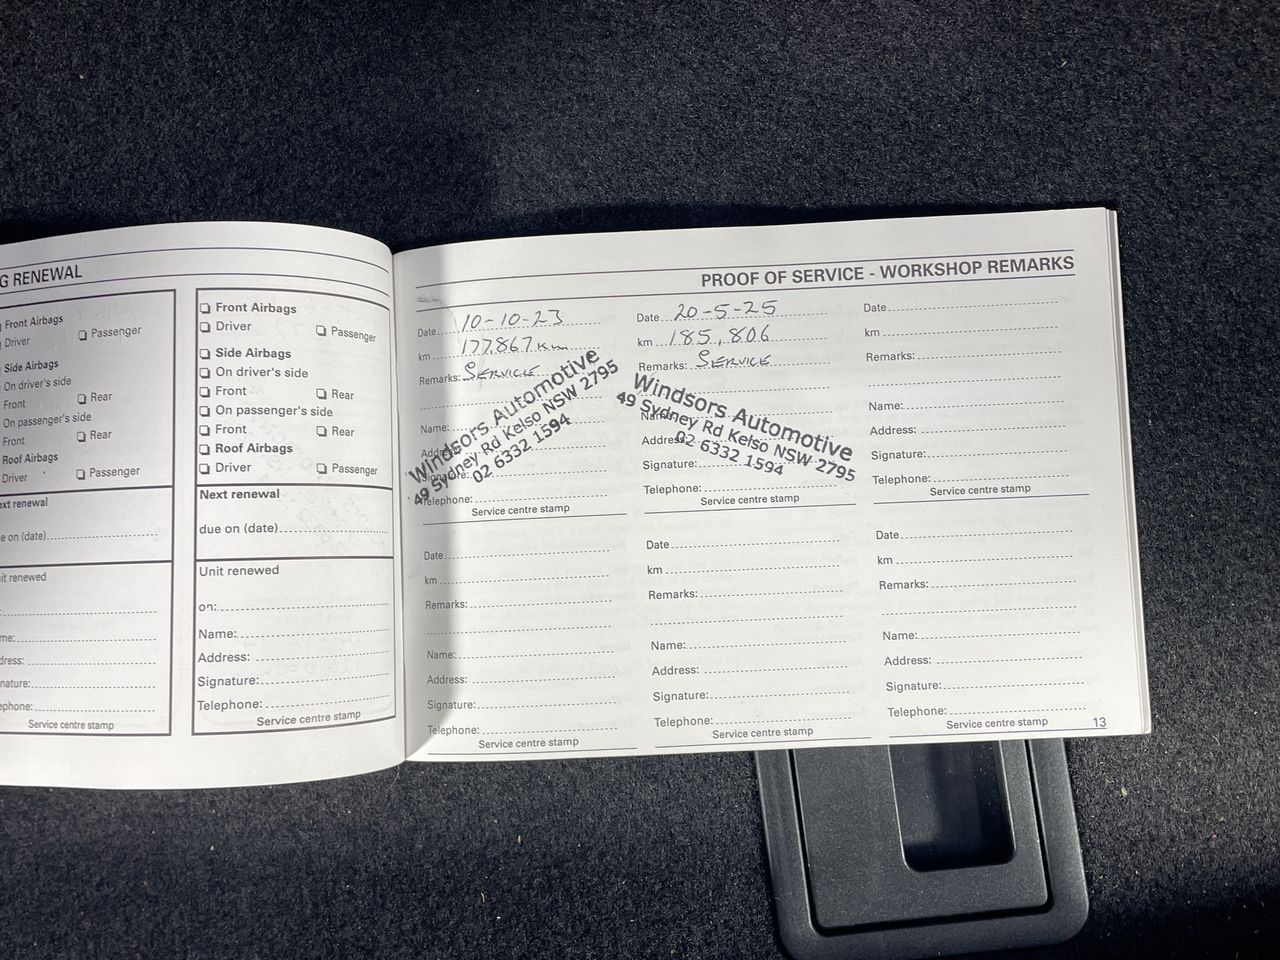 G RENEWAL
Front Airbags
Driver
Passenger
Side Airbags
On driver's side
Front
Rear
On passenger's side
Front
Rear
Roof Airbags
Driver
Passenger
ext renewal
e on (date)
it renewed
me:
dress:
nature:
ephone:
Service centre stamp
Front Airbags
Driver
Passenger
Side Airbags
On driver's side
Front
Rear
On passenger's side
Front
Rear
Roof Airbags
Driver
Passenger
Next renewal
due on (date)
Unit renewed
on:
Name:
Address:
Signature:
Telephone:
Service centre stamp
PROOF OF SERVICE - WORKSHOP REMARKS
Date 10-10-23
km 177867 Km
Remarks: SERVICE
Name:
Address:
Signature:
Telephone:
Windsors Automotive
49 Sydney Rd Kelso NSW 2795
02 6332 1594
Service centre stamp
Date 20-5-25
km 185,806
Remarks: SERVICE
Name:
Address:
Signature:
Telephone:
Windsors Automotive
49 Sydney Rd Kelso NSW 2795
02 6332 1594
Service centre stamp
Date
km
Remarks:
Name:
Address:
Signature:
Telephone:
Service centre stamp
Date
km
Remarks:
Name:
Address:
Signature:
Telephone:
Service centre stamp
Date
km
Remarks:
Name:
Address:
Signature:
Telephone:
Service centre stamp
Date
km
Remarks:
Name:
Address:
Signature:
Telephone:
Service centre stamp
13